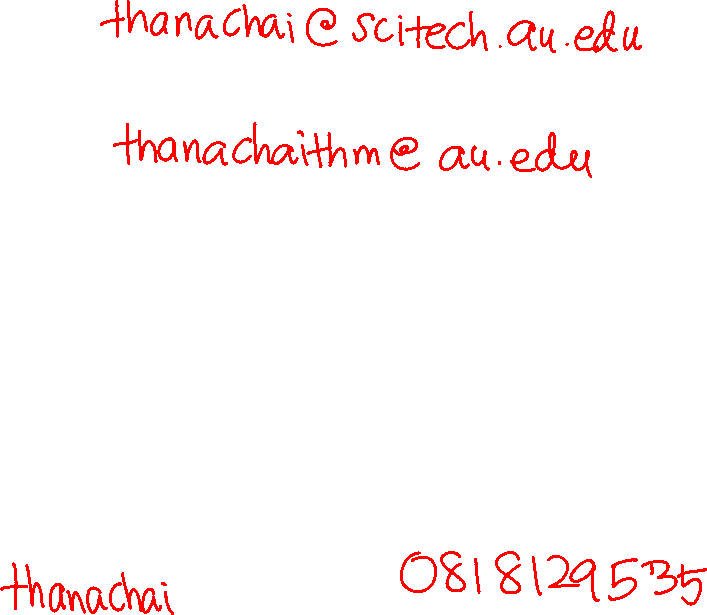 thanachai@scitech.au.edu
thanachaithm@au.edu
thanachai 0818129535